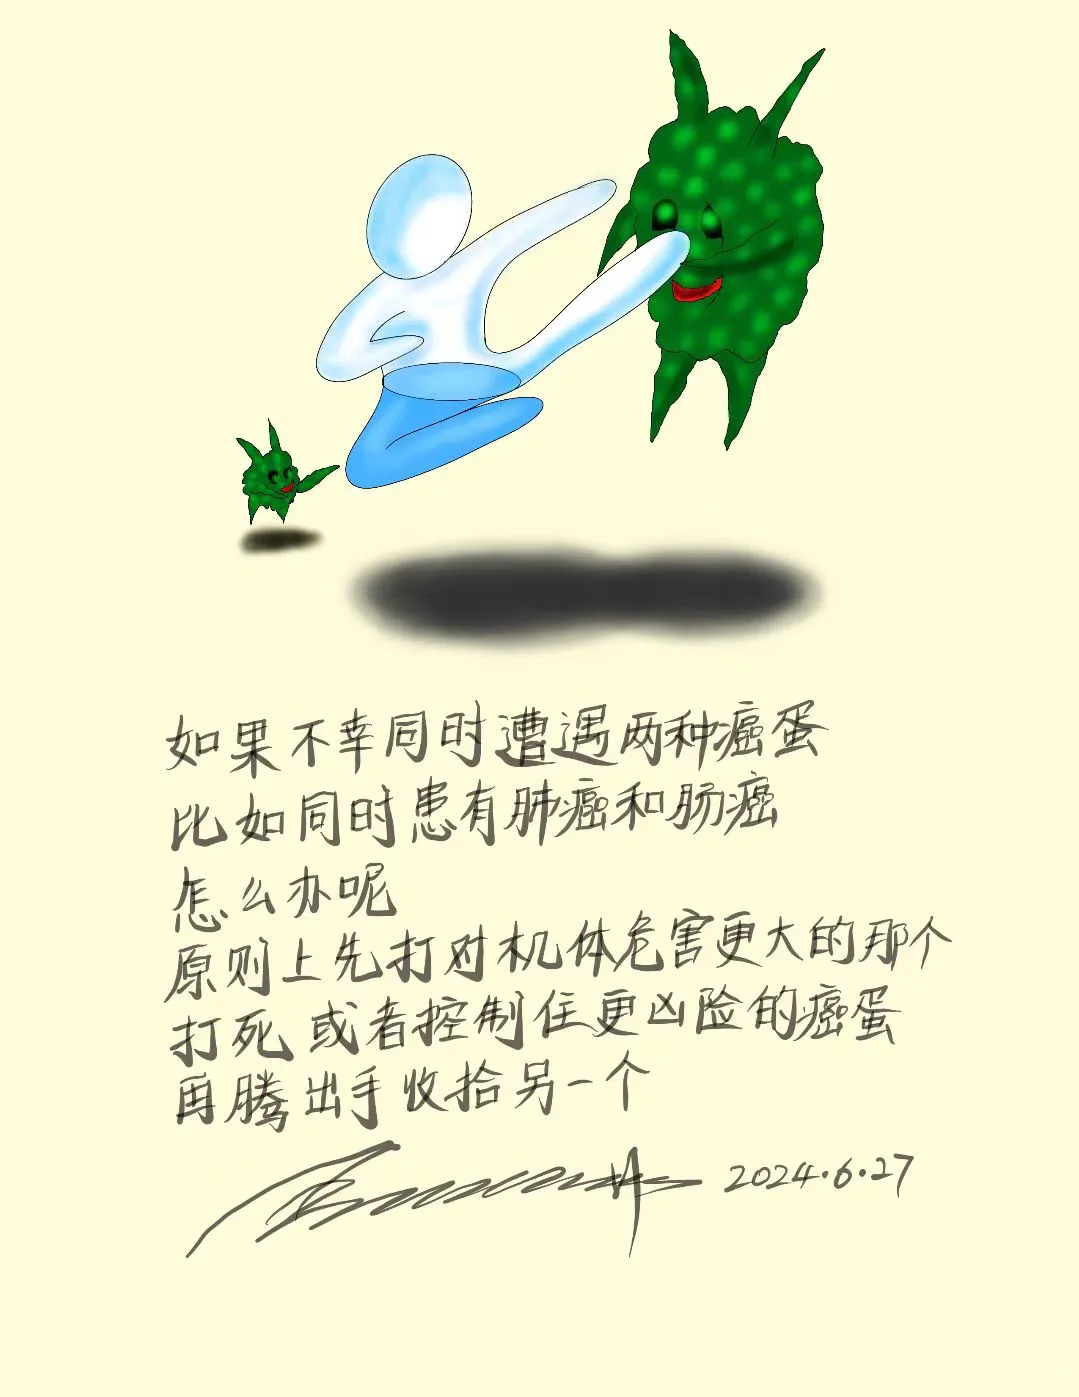 如果不幸同时遭遇两种癌蛋
比如同时患有肺癌和肠癌
怎么办呢
原则上先打对机体危害更大的那个
打死或者控制住更凶险的癌蛋
再腾出手收拾另一个
2024.6.27